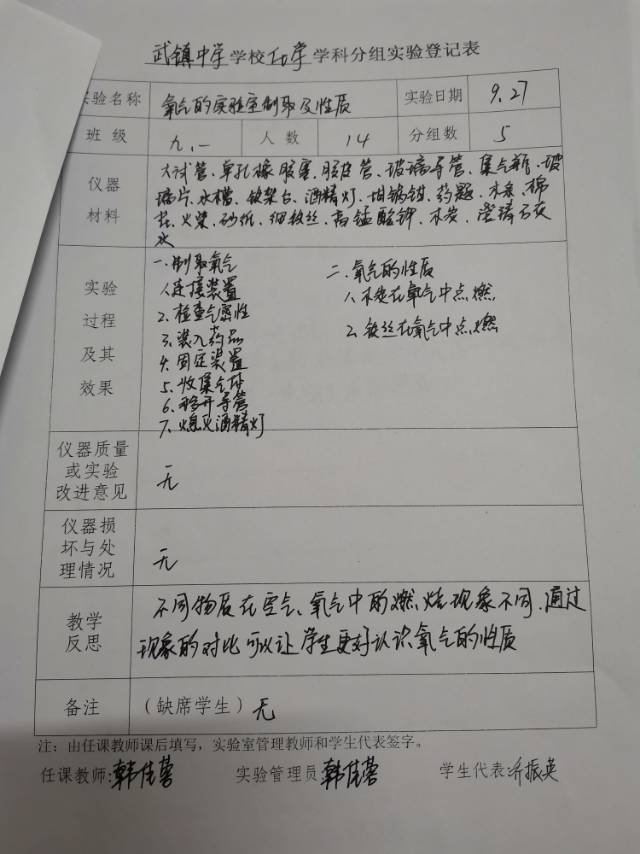 武镇中学学校化学学科分组实验登记表
实验名称 氧气的实验室制取及性质 实验日期 9.27
班级 九.一 人数 14 分组数 5
仪器材料
大试管、单孔橡胶塞、胶皮管、玻璃导管、集气瓶、玻
璃片、水槽、铁架台、酒精灯、坩埚钳、药匙、木条、棉
花、火柴、砂纸、细铁丝、高锰酸钾、木炭、澄清石灰
水
实验过程及其效果
一.制取氧气
1.连接装置
2.检查气密性
3.装入药品
4.固定装置
5.收集气体
6.移开导管
7.熄灭酒精灯
二.氧气的性质
1.木炭在氧气中点燃
2.铁丝在氧气中点燃
仪器质量或实验改进意见 无
仪器损坏与处理情况 无
教学反思
不同物质在空气、氧气中的燃烧现象不同.通过
现象的对比可以让学生更好认识氧气的性质
备注 (缺席学生) 无
注:由任课教师课后填写,实验室管理教师和学生代表签字。
任课教师:韩佳蓉 实验管理员 韩佳蓉 学生代表:乔振英